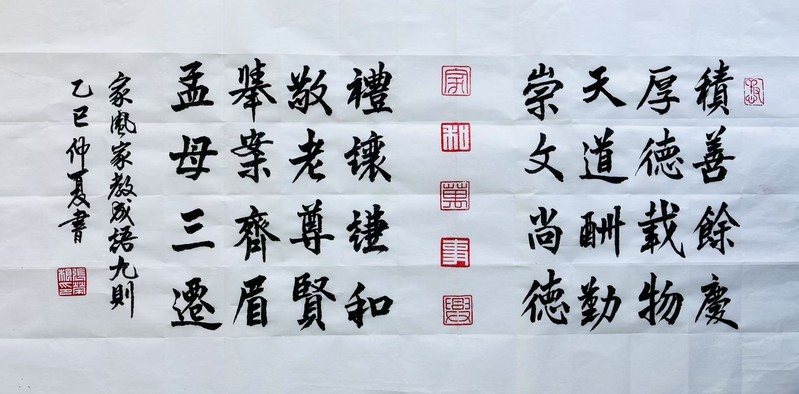 積善餘慶
厚德載物
天道酬勤
崇文尚德
家和萬事興
禮讓謙和
敬老尊賢
舉案齊眉
孟母三遷
家風家教成語九則
乙巳仲夏書